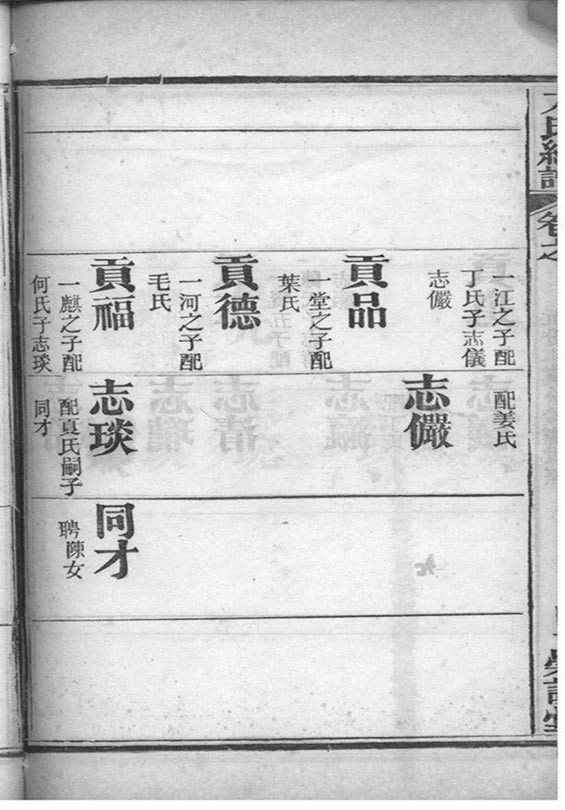 方氏總譜
卷之
一江之子配
丁氏子志儀
志儼
貢品
一堂之子配
葉氏
貢德
一河之子配
毛氏
貢福
一麒之子配
何氏子志琰
配姜氏
志儼
志琰
配夏氏嗣子
同才
同才
聘陳女